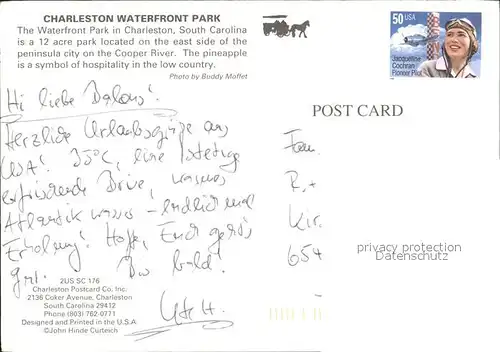 CHARLESTON WATERFRONT PARK
The Waterfront Park in Charleston, South Carolina
is a 12 acre park located on the east side of the
peninsula city on the Cooper River. The pineapple
is a symbol of hospitality in the low country.
Photo by Buddy Moffet
50 USA
Jacqueline
Cochran
Pioneer Pilot
POST CARD
Hi liebe
Herzliche Urlaubsgrüße aus
USA! 35°C, eine stetige
erfrischende Brise, warmes
Atlantik wasser – endlich mal
Erholung! Hoffe, Euch geht's
gut. Bis bald!
Fam.
R. +
Kir.
654
privacy protection
Datenschutz
2US SC 176
Charleston Postcard Co. Inc.
2136 Coker Avenue, Charleston
South Carolina 29412
Phone (803) 762-0771
Designed and Printed in the U.S.A
©John Hinde Curteich